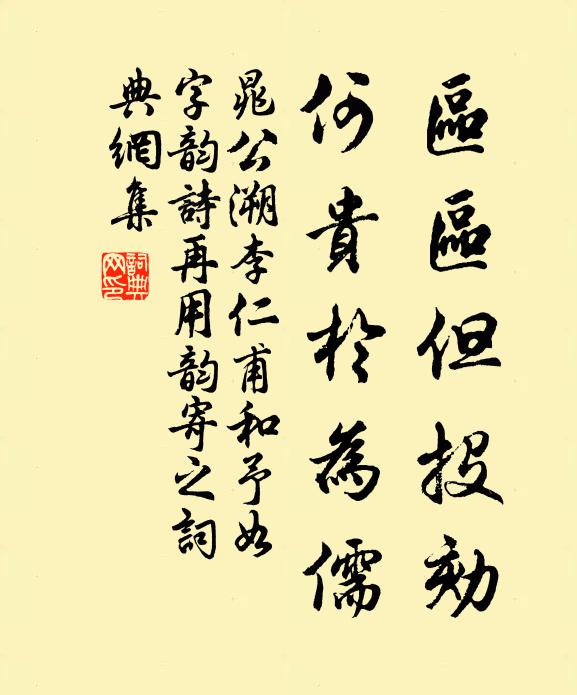 區區但投劾
何貴於為儒
晁公溯李仁甫和予如
字韵詩再用韵寄之詞
典網集
詞典网印